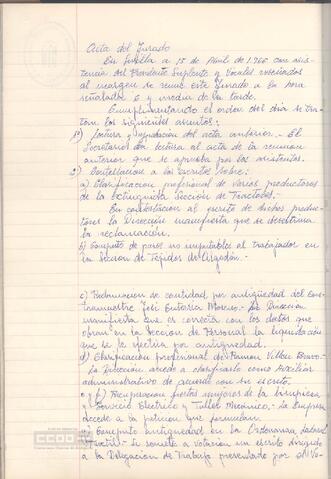 Acta del Jurado
En Sevilla a 15 de Abril de 1.966 con asis-
tencia del Presidente Suplente y Vocales reseñados
al margen se reune este Jurado a la hora
señalada 6 y media de la tarde.
Cumplimentando el orden del día se tra-
tan los siguientes asuntos:
1º) Lectura y aprobación del acta anterior. - El
Secretario da lectura al acta de la reunion
anterior que se aprueba por los asistentes.
2) Contestacion a los escritos sobre:
a) Clasificacion profesional de varios productores
de la extinguida Sección de Tractores.
En contestacion al escrito de dichos produc-
tores la Dirección manifiesta que se desestima
la reclamación.
b) Computo de paros no imputables al trabajador en
la Seccion de Tejidos de Algodón.
c) Reclamacion de cantidad por antigüedad del Con-
tramaestre Felix Moreno. - La Direccion
manifiesta que es correcta con los datos que
obran en la Seccion de Personal la liquidación
que se le efectua por antiguedad.
d) Clasificación profesional de Ramon Villen Bravo. -
La Direccion accede a clasificarlo como Auxiliar
administrativo de acuerdo con su escrito.
e y f) Recuperacion fiestas mujeres de la limpieza
y Servicio Electrico y Taller Mecanico. La Empresa
accede a la peticion que formulan.
g) Computo antiguedad en la Ordenanza Laboral
Textil. - Se somete a votacion un escrito dirigido
a la Delegacion de Trabajo presentado por el Vo-
CCOO